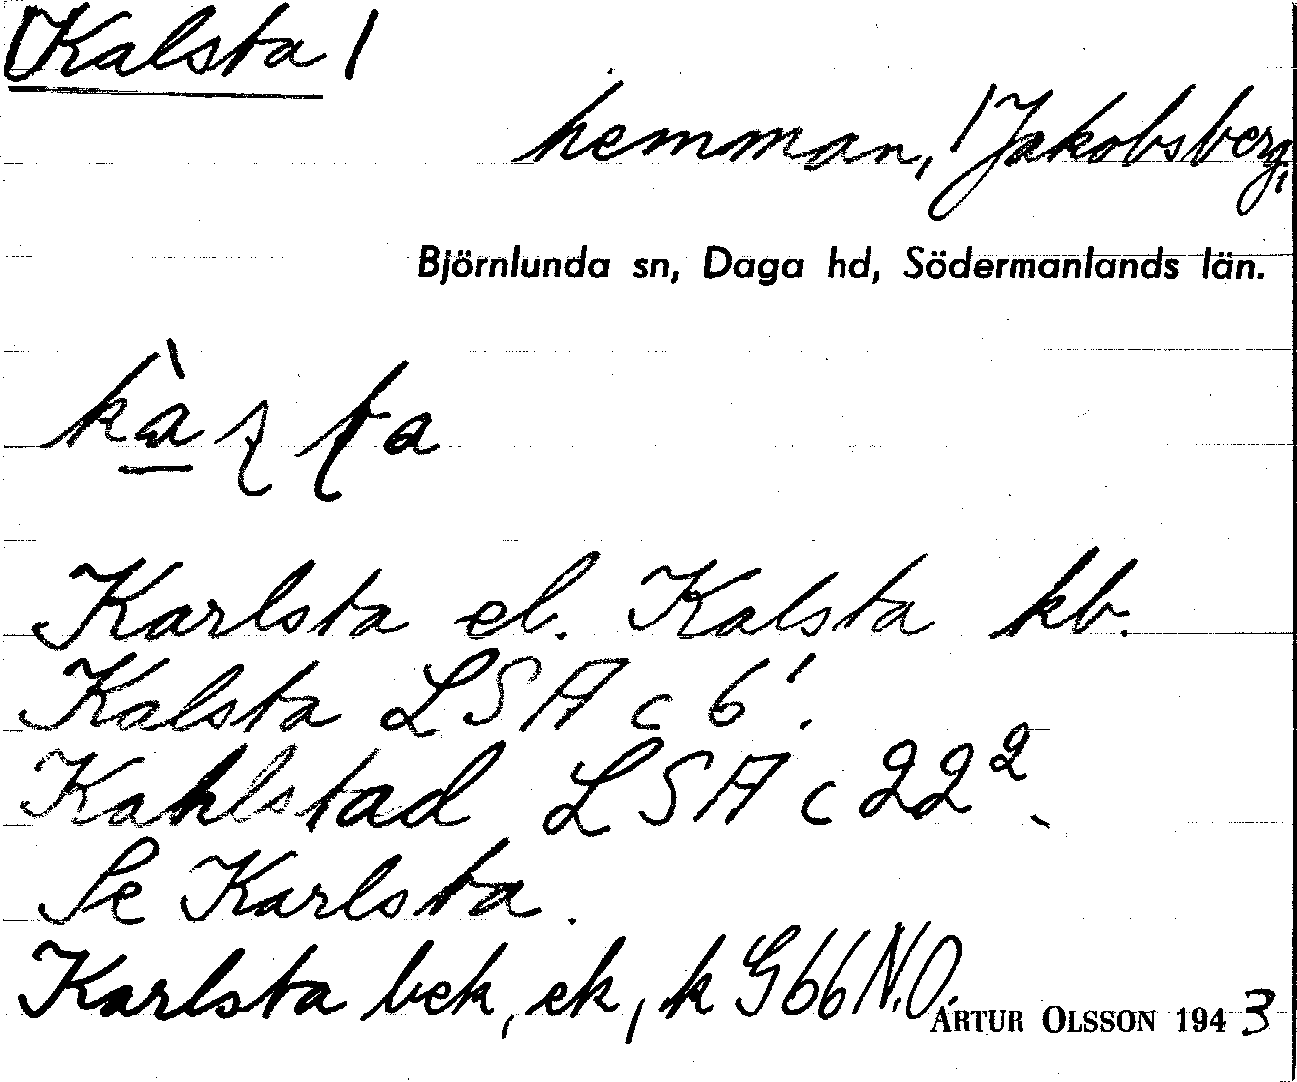 (Kalsta)
hemman, (Jakobsberg,
Björnlunda sn, Daga hd, Södermanlands län.
Karlsta el. Kalsta kb.
Kalsta LSA c 6¹.
Kahlstad LSA c 22².
Se Karlsta.
Karlsta bek, ek, k G66 N.O.
ARTUR OLSSON 1943